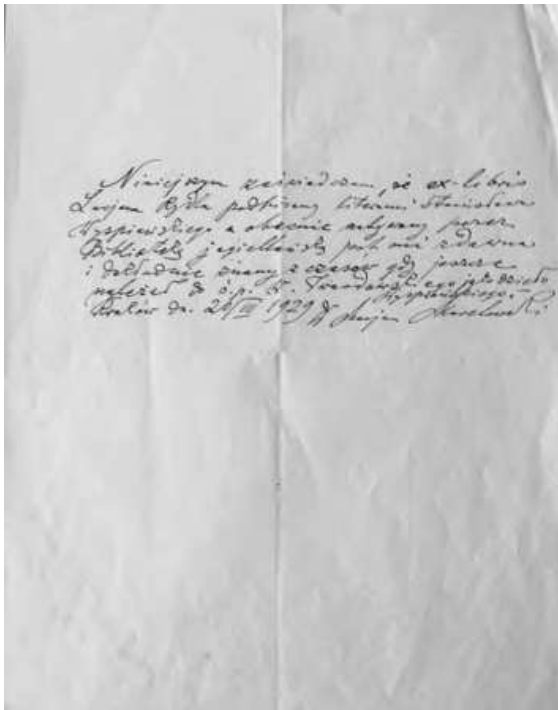 Niniejszym zaświadczam, że ex-libris
Lucjana Rydla podpisany literami Stanisława
Wyspiańskiego a obecnie nabywany przez
Bibliotekę Jagiellońską jest mi zdawna
i dokładnie znany z czasów gdy jeszcze
należał do ś.p. K. Twardowskiego jako dzieło
Wyspiańskiego.
Kraków dn. III 1929 Dr